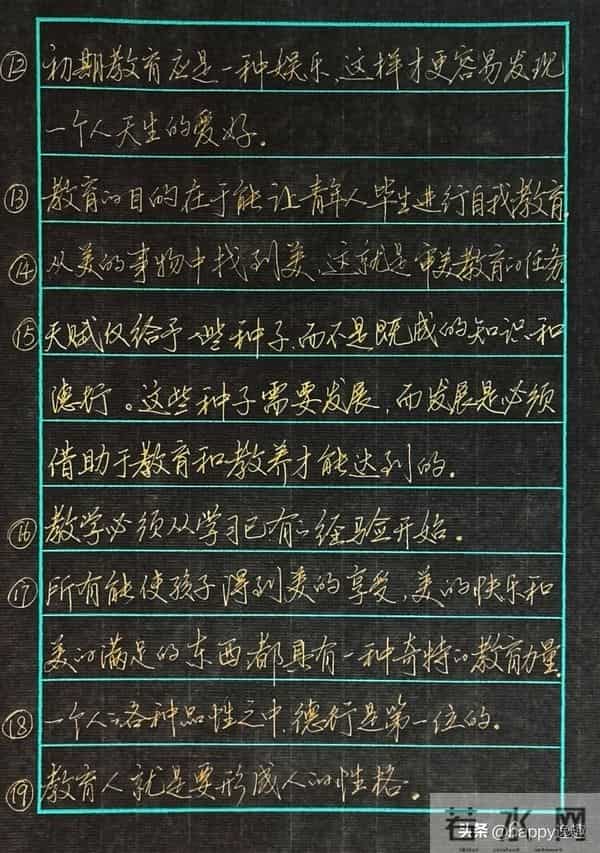 ⑫ 初期教育应是一种娱乐,这样才更容易发现
一个人天生的爱好。
⑬ 教育的目的在于能让青年人毕生进行自我教育。
⑭ 从美的事物中找到美,这就是审美教育的任务
⑮ 天赋仅给予一些种子,而不是既成的知识和
德行。这些种子需要发展,而发展是必须
借助于教育和教养才能达到的。
⑯ 教学必须从学习已有的经验开始。
⑰ 所有能使孩子得到美的享受,美的快乐和
美的满足的东西,都具有一种奇特的教育力量
⑱ 一个人的各种品性之中,德行是第一位的。
⑲ 教育人就是要形成人的性格。
若水网
头条 @happy逸趣